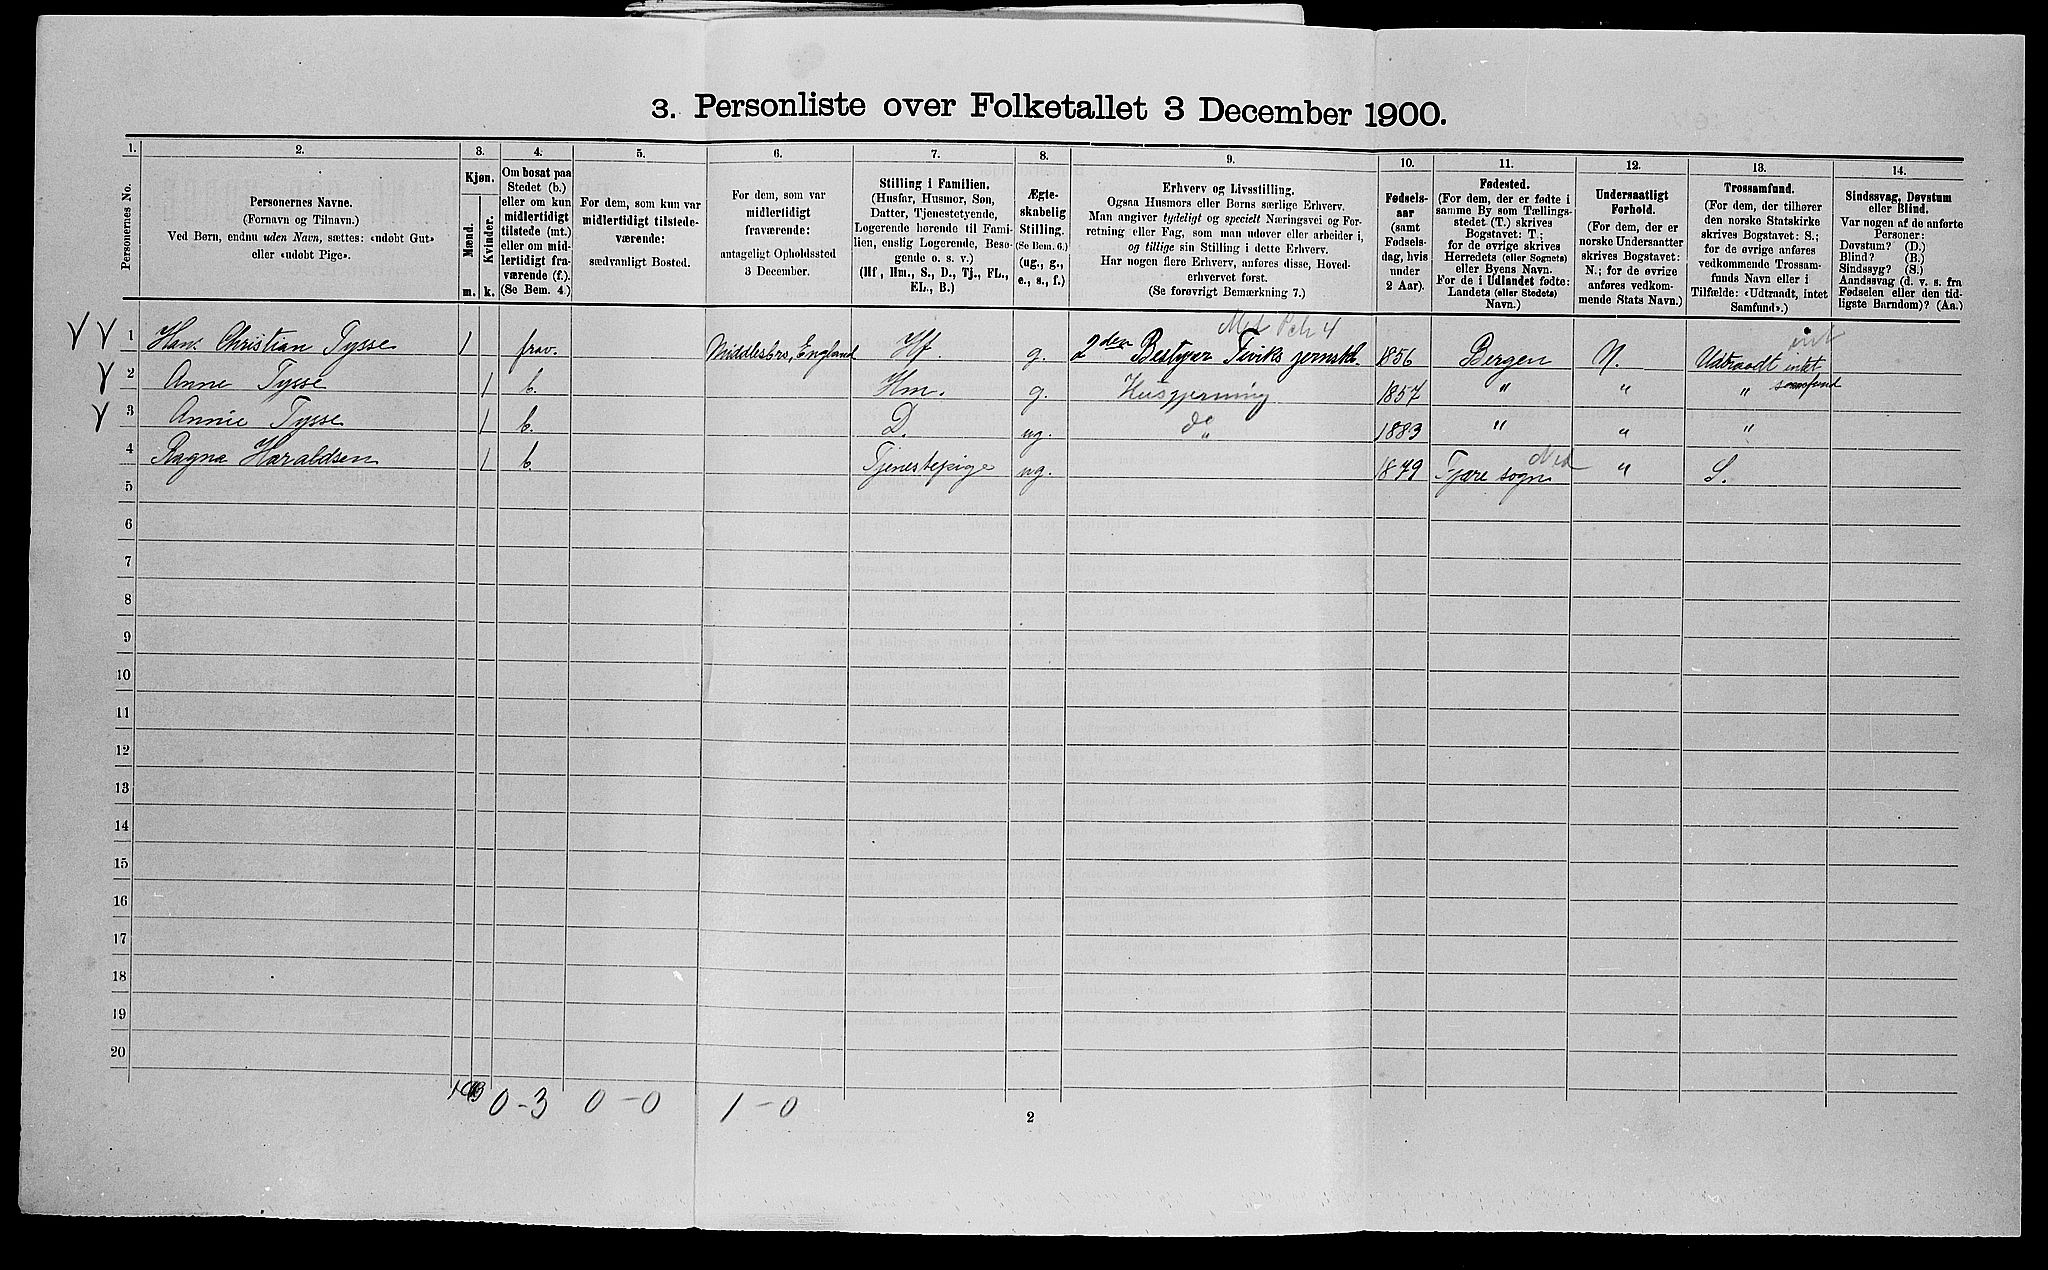 3. Personliste over Folketallet 3 December 1900.
1. 2. 3. 4. 5. 6. 7. 8. 9. 10. 11. 12. 13. 14.
Personernes No.
Personernes Navne.
(Fornavn og Tilnavn.)
Ved Børn, endnu uden Navn, sættes: «udøbt Gut»
eller «udøbt Pige».
Kjøn.
Mænd.
Kvinder.
m. k.
Om bosat paa
Stedet (b.)
eller om kun
midlertidigt
tilstede (mt.)
eller om mid-
lertidigt fra-
værende (f.).
(Se Bem. 4.)
For dem, som kun var
midlertidigt tilstede-
værende:
sædvanligt Bosted.
For dem, som var
midlertidigt
fraværende:
antageligt Opholdssted
3 December.
Stilling i Familien.
(Husfar, Husmor, Søn,
Datter, Tjenestetyende,
Logerende hørende til Fami-
lien, enslig Logerende, Besø-
gende o. s. v.)
(Hf, Hm., S., D., Tj., FL.,
EL., B.)
Ægte-
skabelig
Stilling.
(Se Bem. 6.)
(ug., g.,
e., s., f.)
Erhverv og Livsstilling.
Ogsaa Husmors eller Børns særlige Erhverv.
Man angiver tydeligt og specielt Næringsvei og For-
retning eller Fag, som man udøver eller arbeider i,
og tillige sin Stilling i dette Erhverv.
Har nogen flere Erhverv, anføres disse, Hoved-
erhvervet først.
(Se forøvrigt Bemærkning 7.)
Fødsels-
aar
(samt
Fødsels-
dag, hvis
under
2 Aar).
Fødested.
(For dem, der er fødte i
samme By som Tællings-
stedet (T.) skrives
Bogstavet: T.;
for de øvrige skrives
Herredets (eller Sognets)
eller Byens Navn.
For de i Udlandet fødte:
Landets (eller Stedets)
Navn.)
Undersaatligt
Forhold.
(For dem, der er
norske Undersaatter
skrives Bogstavet:
N.; for de øvrige
anføres vedkom-
mende Stats Navn.)
Trossamfund.
(For dem, der tilhører
den norske Statskirke
skrives Bogstavet: S.;
for de øvrige anføres
vedkommende Trossam-
funds Navn eller i
Tilfælde: «Udtraadt, intet
Samfund».)
Sindssvag, Døvstum
eller Blind.
Var nogen af de anførte
Personer:
Døvstum? (D.)
Blind? (B.)
Sindssyg? (S.)
Aandssvag (d. v. s. fra
Fødselen eller den tid-
ligste Barndom)? (Aa.)
1 Hans Christian Tysse 1 frav. Middlesbro, England Hf g. 2den Bestyrer 1856 Bergen N. Udtraadt intet
samfund
2 Anne Tysse 1 b. Hm. g. Husgjerning 1857 " " "
3 Annie Tysse 1 b. D. ug. do " 1883 " " "
4 Ragna Haraldsen 1 b. Tjenestepige ug. 1879 Tjøre sogn " S.
5
6
7
8
9
10
11
12
13
14
15
16
17
18
19
20
0-3 0-0 1-0
2